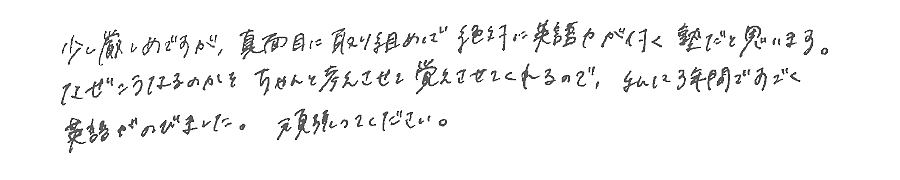 少し厳しめですが、真面目に取り組めば絶対に英語力が付く塾だと思います。
なぜこうなるのかをちゃんと考えさせて覚えさせてくれるので、私は3年間ですごく
英語がのびました。 頑張ってください。